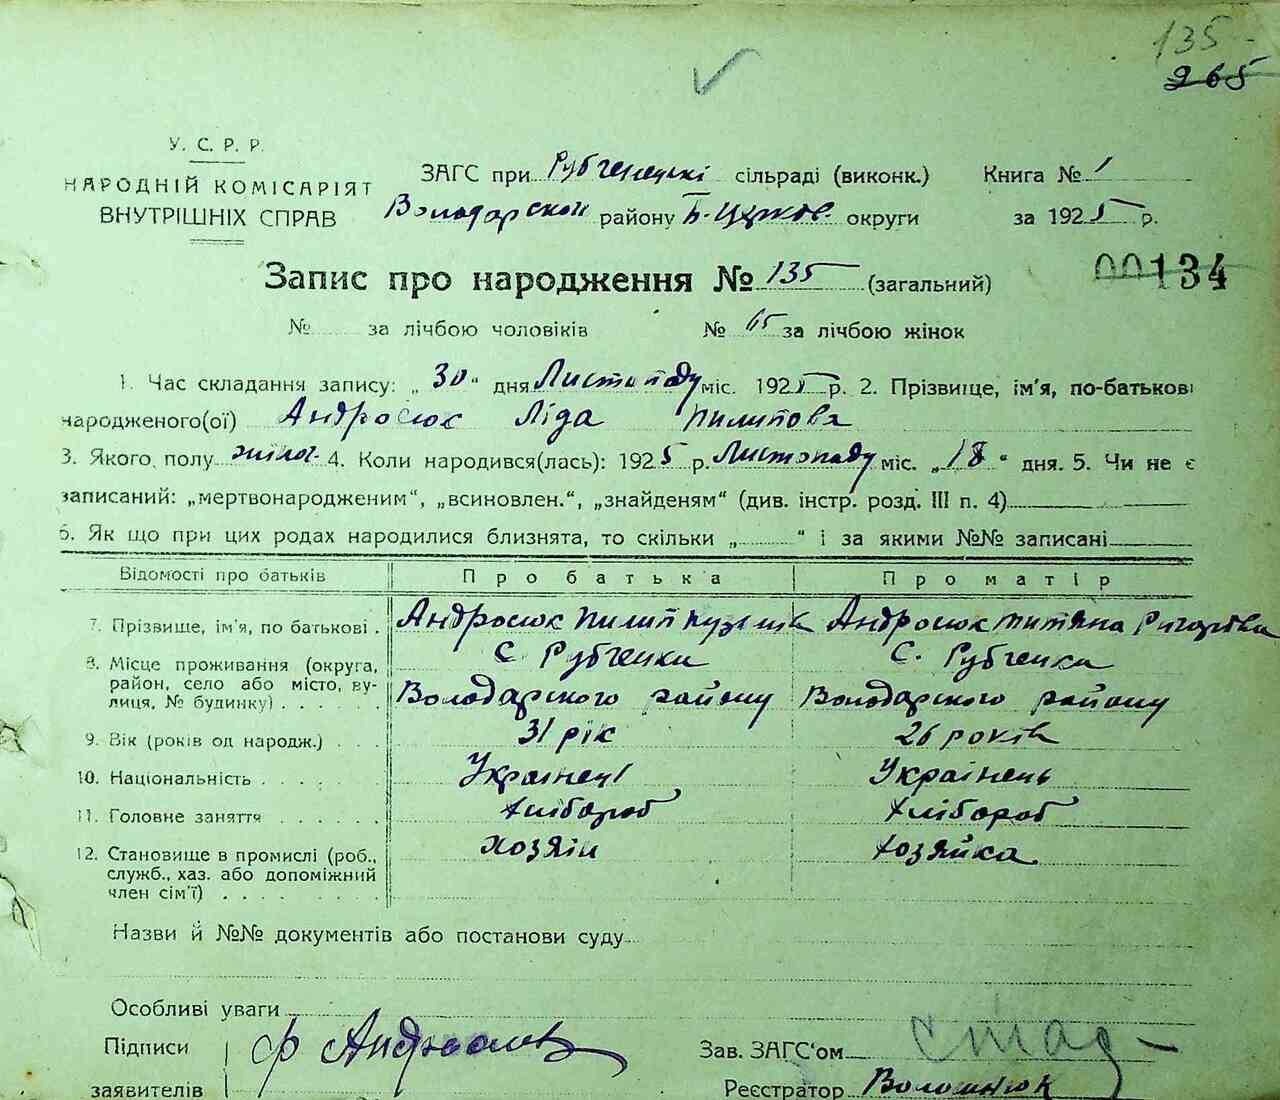 135 -
265
У. С. Р. Р.
НАРОДНІЙ КОМІСАРІЯТ
ВНУТРІШНІХ СПРАВ
ЗАГС при Рубченецькі сільраді (виконк.) Книга № 1
Володарском району Б-Церков. округи за 1925 р.
Запис про народження № 135 (загальний)
00134
№ за лічбою чоловіків № 65 за лічбою жінок
1. Час складання запису: „ 30 “ дня Листопаду міс. 1925 р. 2. Прізвище, ім'я, по-батькові
народженого(ої) Андросюк Ліда Пилипова
3. Якого полу жіноч. 4. Коли народився(лась): 1925 р. Листопаду міс. „ 18 “ дня. 5. Чи не є
записаний: „мертвонародженим“, „всиновлен.“, „знайденям“ (див. інстр. розд. III п. 4)
6. Як що при цих родах народилися близнята, то скільки „ “ і за якими №№ записані
Відомості про батьків Про батька Про матір
7. Прізвище, ім'я, по батькові . Андросюк Пилип Кузьмів Андросюк Титяна Ригорівна
8. Місце проживання (округа, с. Рубченки с. Рубченка
район, село або місто, ву- Володарского району Володарского району
лиця, № будинку) . . . . . .
9. Вік (років од народж.) . . . 31 рік 26 років
10. Національність . . . . . . Українець Українець
11. Головне заняття . . . . . . хлібороб хлібороб
12. Становище в промислі (роб., хозяін хозяйка
служб., хаз. або допоміжний
член сім'ї) . . . . . . . .
Назви й №№ документів або постанови суду
Особливі уваги
Підписи
заявителів
Зав. ЗАГС'ом
Реєстратор Волошнюк